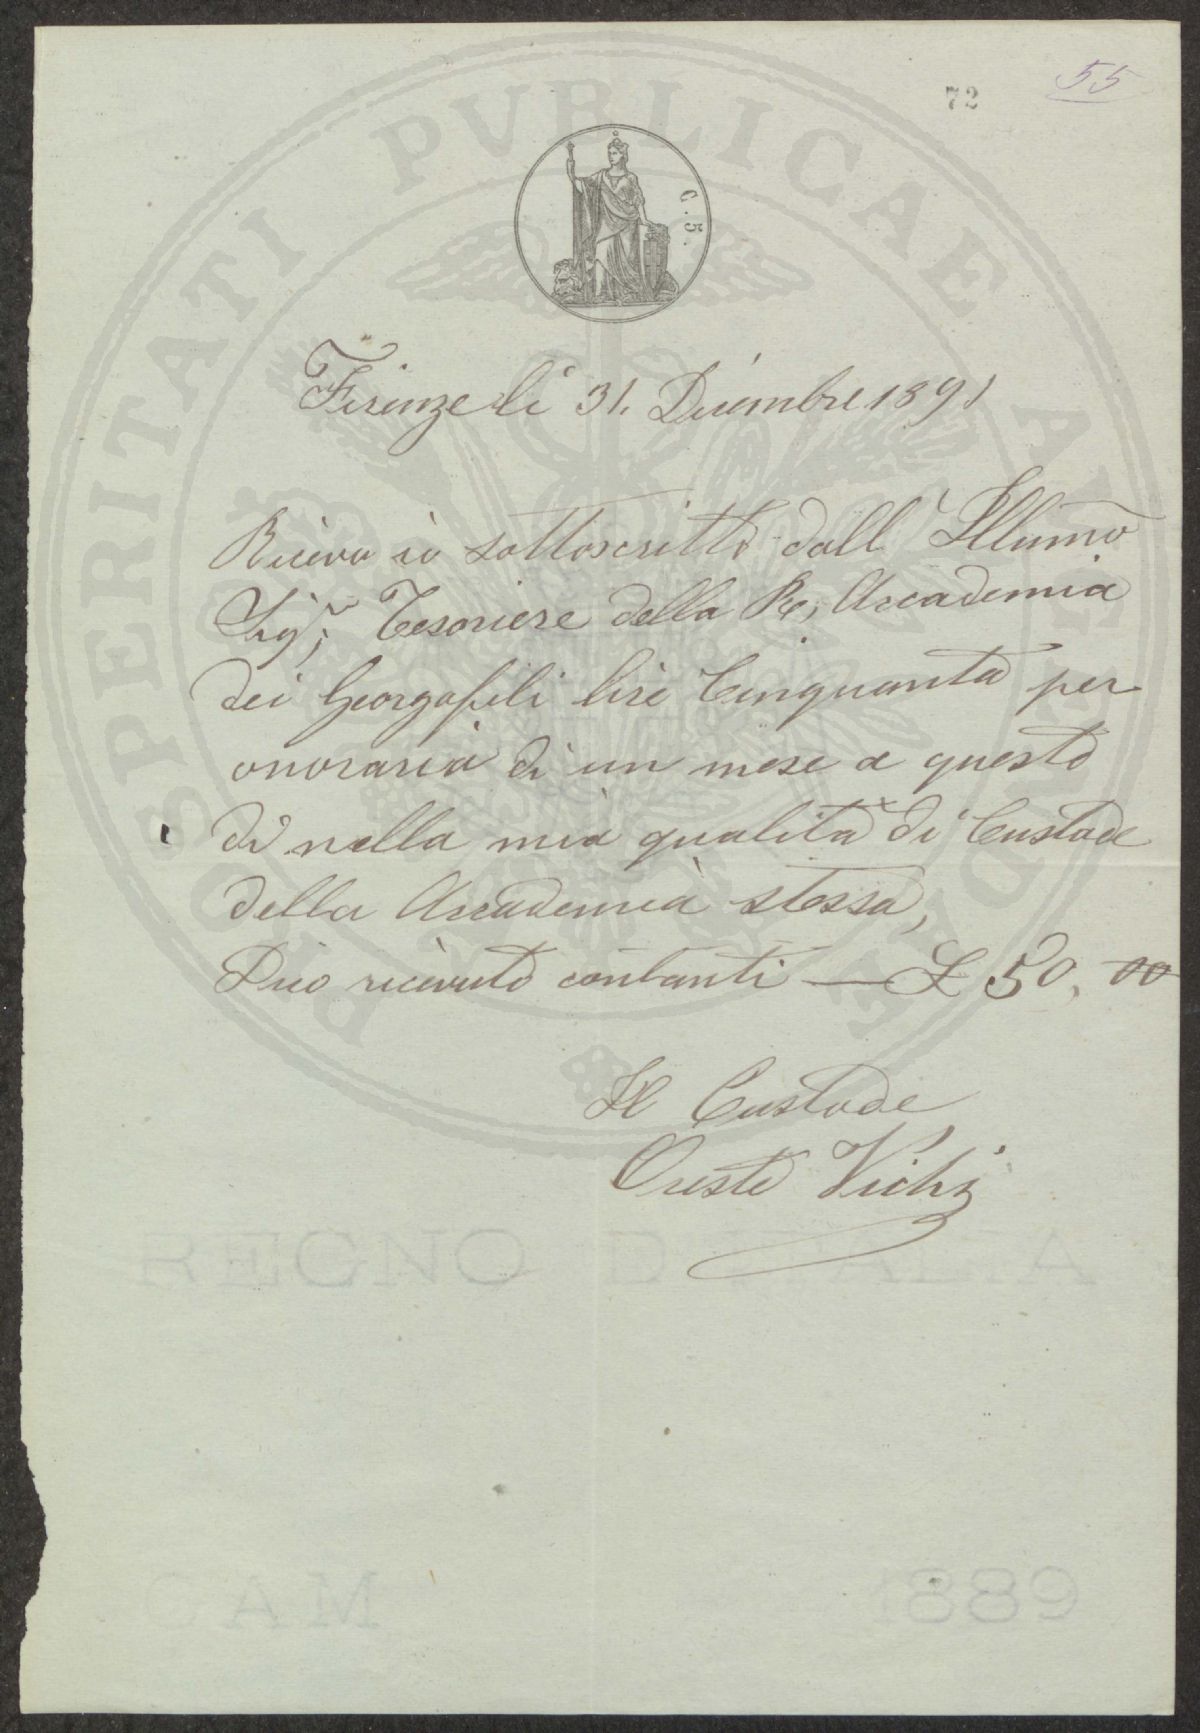 55
72
C. 5.
PROSPERITATI PVBLICAE AVGENDAE
Firenze li 31. Dicembre 1891
Ricevo io sottoscritto dall' Illumo
Sig.r Tesoriere della R, Accademia
dei Georgofili lire Cinquanta per
onorario di un mese a questo
dì nella mia qualità di Custode
della Accademia stessa,
Dico ricevuto contanti — L 50, 00
Il Custode
Oreste Vichi
REGNO D'ITALIA
CAM 1889